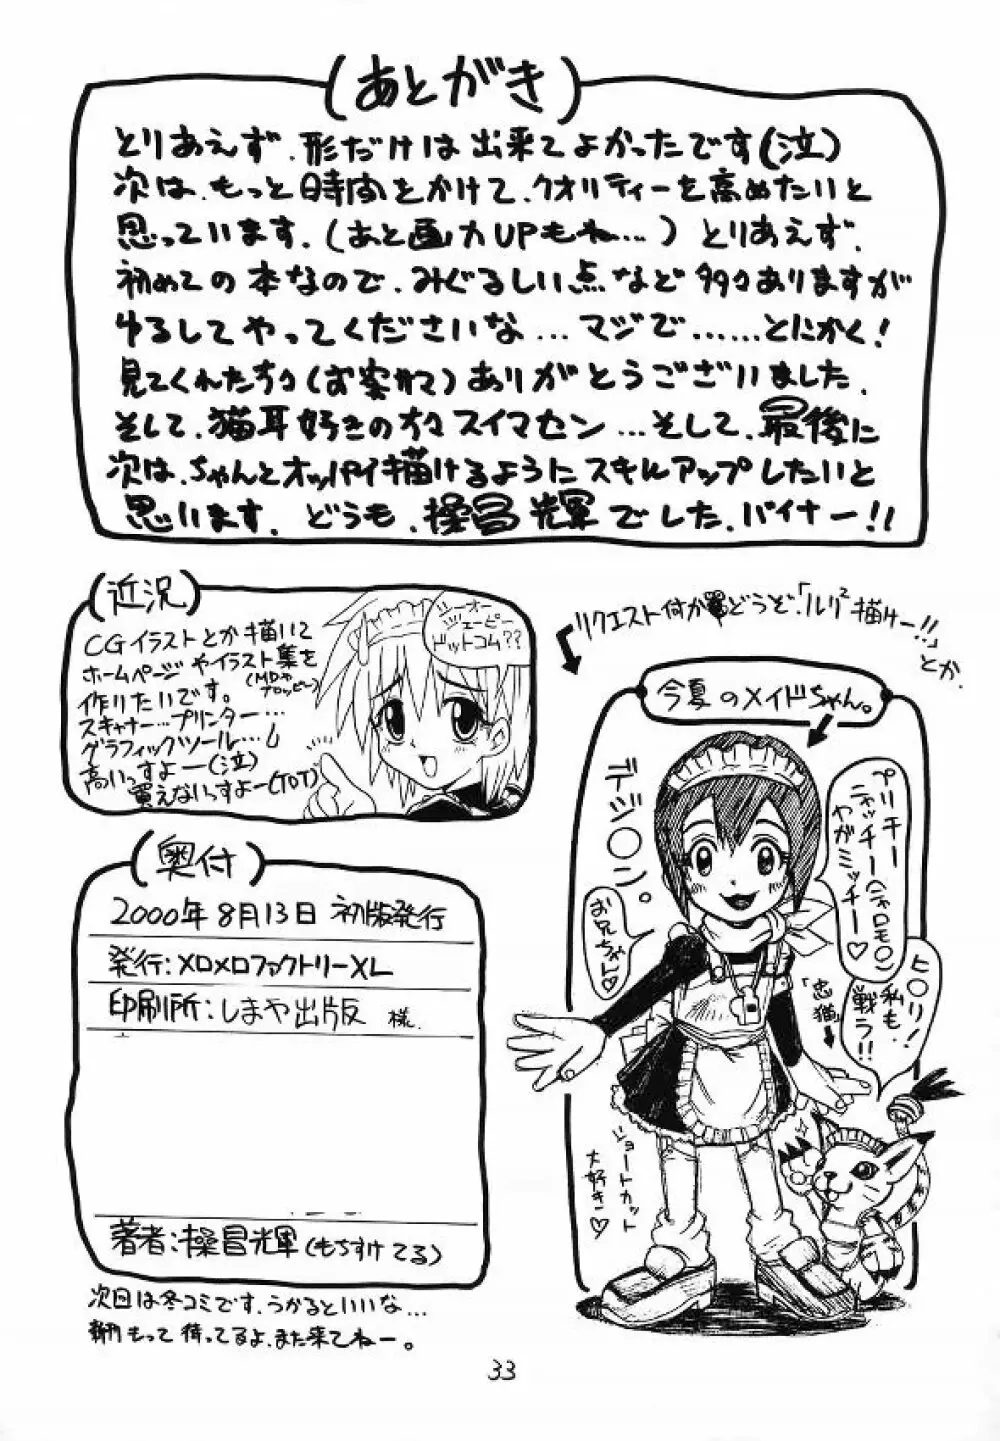 (あとがき)
とりあえず、形だけは出来てよかったです(泣)
次は、もっと時間をかけて、クオリティーを高めたいと
思っています。(あと画力UPもね…)とりあえず、
初めての本なので、みぐるしい点など多々ありますが
ゆるしてやってくださいな…マジで……とにかく!
見てくれた方々(お客サマ)ありがとうございました。
そして、猫耳好きの方々スイマセン…そして、最後に
次は、ちゃんとオッパイ描けるようにスキルアップしたいと
思います。どうも、操冒光輝でした、バイナー!!
(近況)
CGイラストとか描いて
ホームページやイラスト集を
(MDやフロッピー)
作りたいです。
スキャナー…プリンター…
グラフィックツール…
高いっすよー(泣)
買えないっすよー(ToT)
シーオー
ジェーピー
ドットコム??
リクエスト何かどうぞ。「ルリルリ描けー!!」
とか。
今夏のメイドちゃん。
デジ○ン。
プリチー
ニャッチー(ニャロモ○ン)
やがミッチー♡
お兄ちゃん♡
ヒ○リ!
私も
戦う!!
「忠猫」
ショートカット
大好き♡
(奥付)
2000年8月13日 初版発行
発行:メロメロファクトリーXL
印刷所:しまや出版 様
著者:操冒光輝(もちすけてる)
次回は冬コミです、うかるといいな…
もって待ってるよ、また来てねー。
33